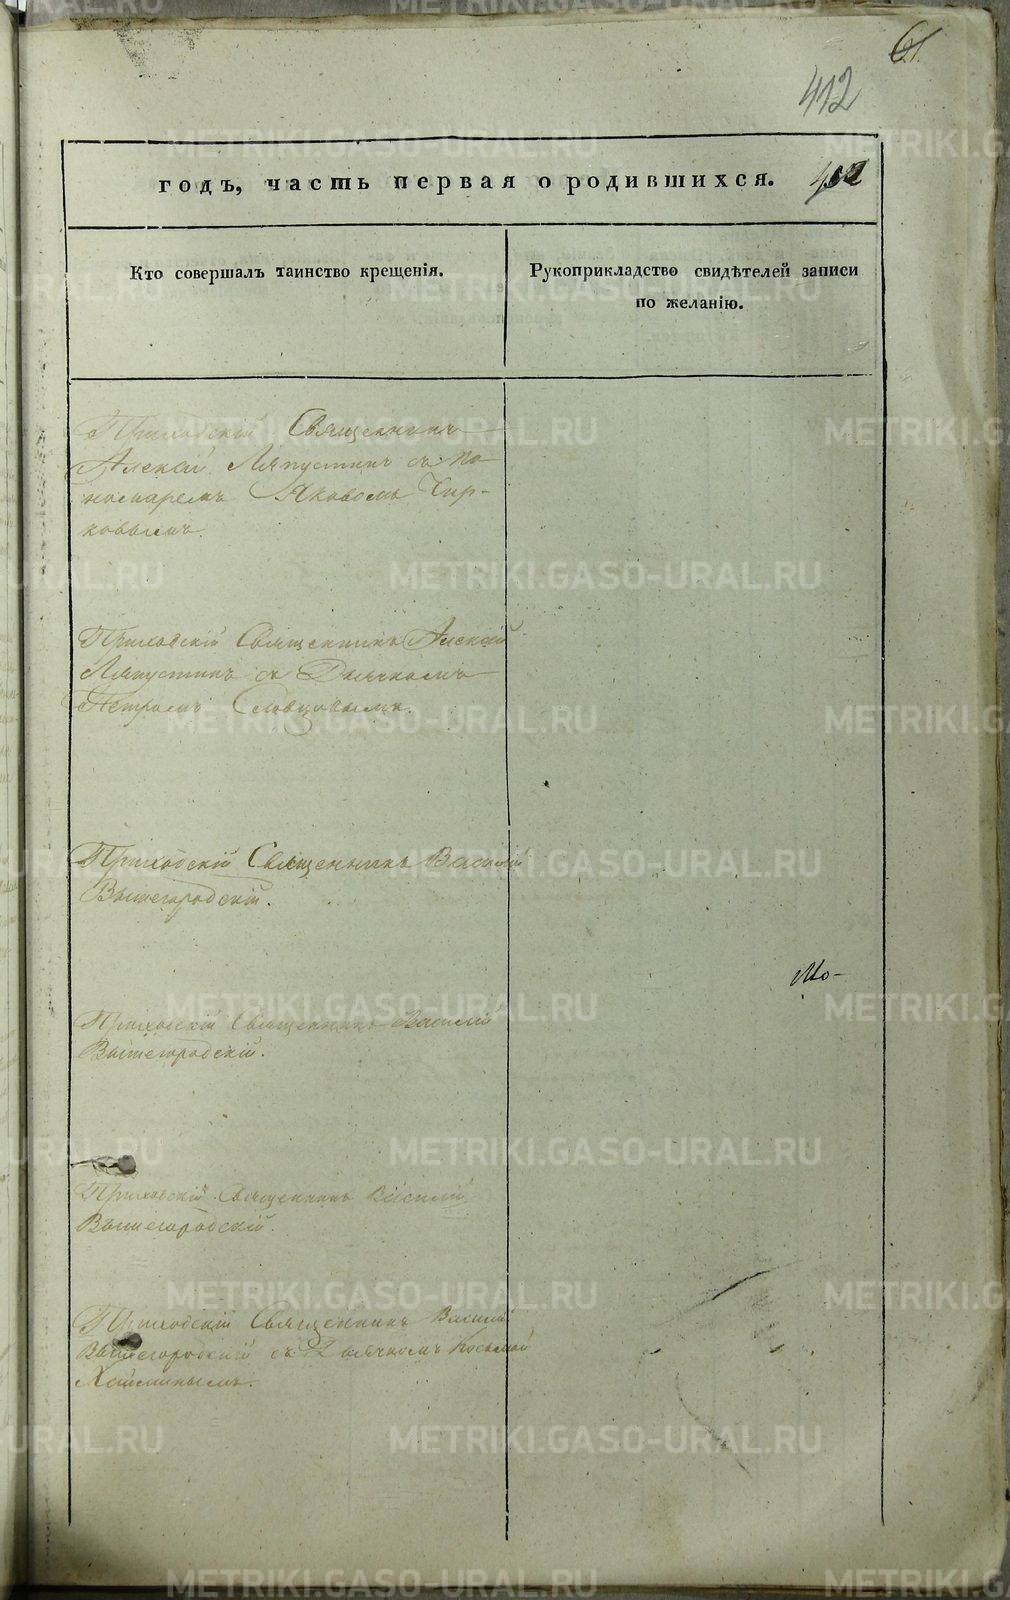 61.
412
годъ, часть первая о родившихся.
Кто совершалъ таинство крещенія.
Рукоприкладство свидѣтелей записи
по желанію.
Приходскій Священникъ
Алексій Ляпустинъ съ по
номаремъ Яковомъ Чир-
ковымъ.
Приходскій Священникъ Алексій
Ляпустинъ съ Дьячкомъ
Петромъ Словцовымъ.
Приходскій Священникъ Василій
Вышегородскій.
Мо-
Приходскій Священникъ Василій
Вышегородскій.
Приходскій Священникъ Василій
Вышегородскій.
Приходскій Священникъ Василій
Вышегородскій съ Дьячкомъ Космой
METRIKI.GASO-URAL.RU